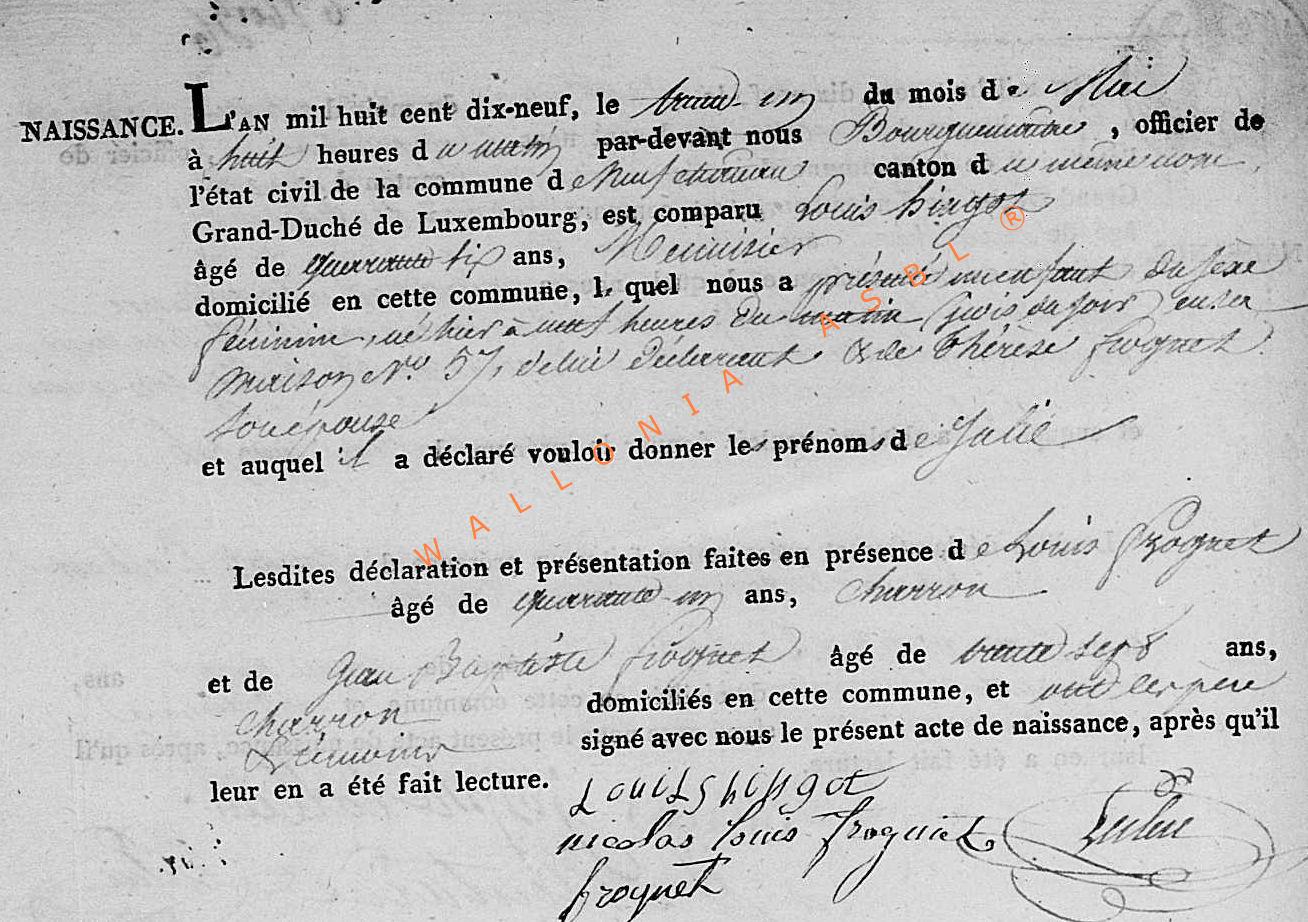 NAISSANCE. L'AN mil huit cent dix-neuf, le trente-un du mois de Mai
à huit heures du matin par-devant nous Bourguemaitre, officier de
l'état civil de la commune de Neufchateau canton du même nom,
Grand-Duché de Luxembourg, est comparu Louis
âgé de quarante six ans, Menuisier
domicilié en cette commune, le quel nous a présenté un enfant du sexe
féminin, né hier à heures du matin (du soir) en sa
maison No. 57, de lui déclarant & de Thérèse Froguet
son épouse
et auquel il a déclaré vouloir donner les prénoms de Julie
Lesdites déclaration et présentation faites en présence de Louis Froguet
âgé de quarante-un ans, charron
et de Jean Baptiste Froguet âgé de trente sept ans,
charron domiciliés en cette commune, et ont les père
& témoins signé avec nous le présent acte de naissance, après qu'il
leur en a été fait lecture.
nicolas louis froguet
froguet
WALLONIA ASBL ®